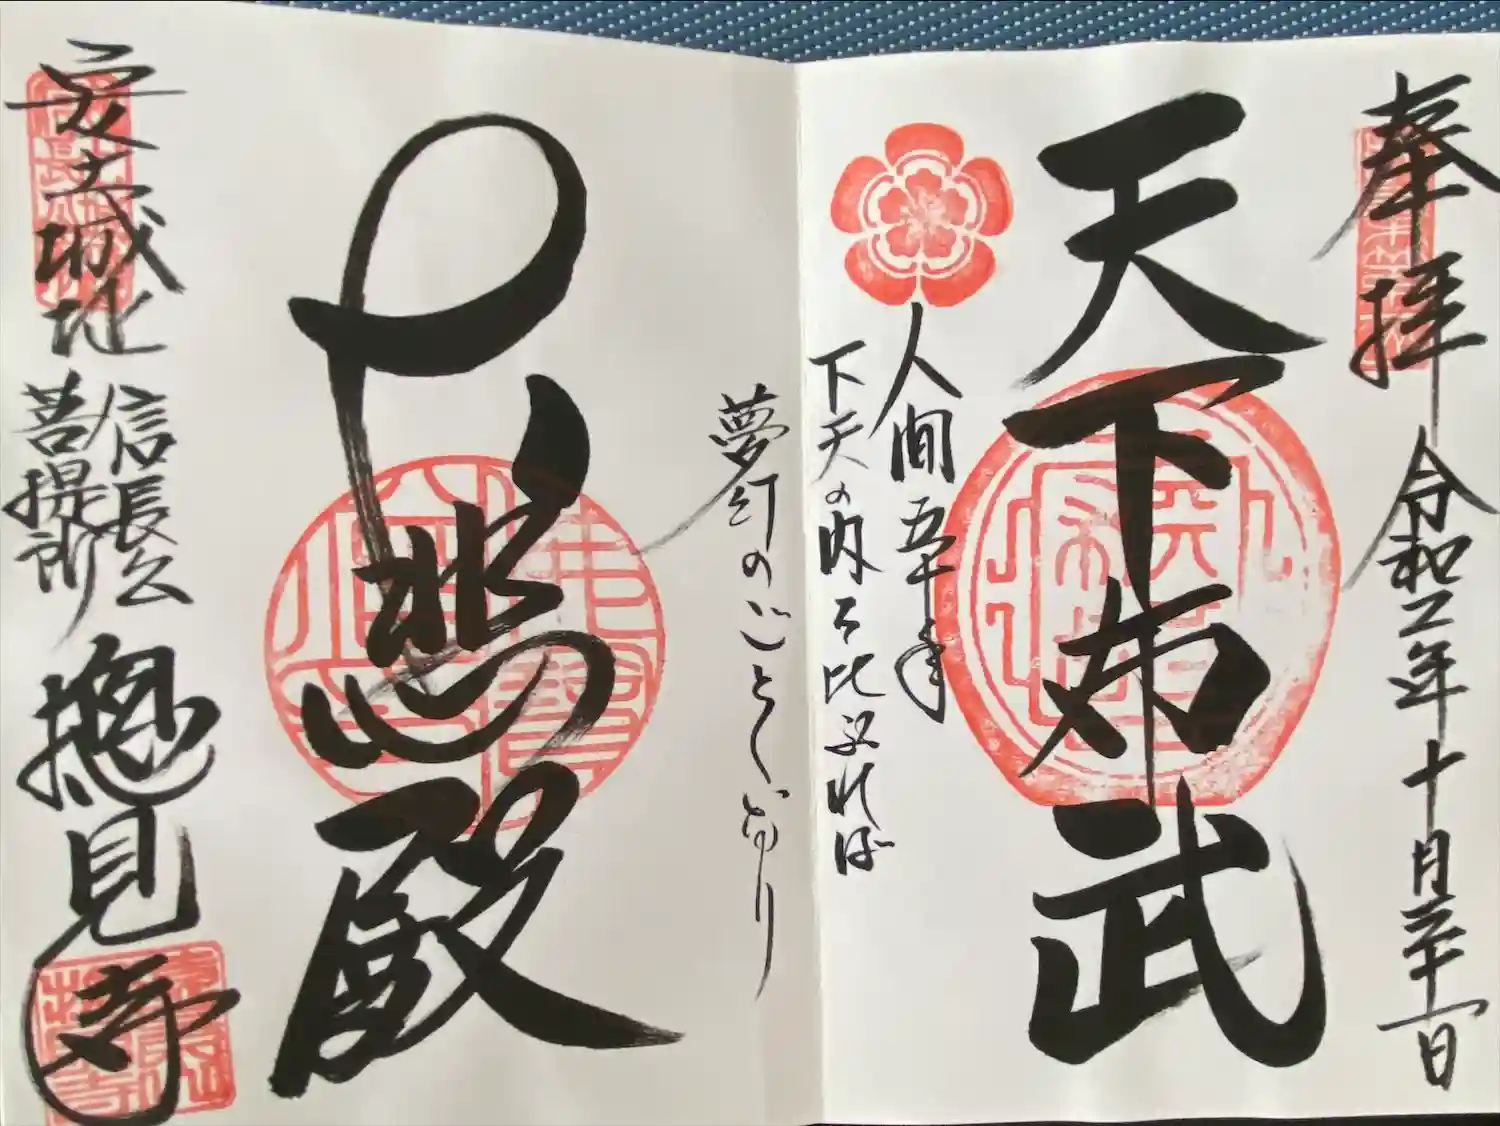 奉拝 令和二年十月三十一日
天下布武
人間五十年
下天の内を比ぶれば
夢幻のごとくなり
大悲殿
安土城址
信長公
菩提所
摠見寺